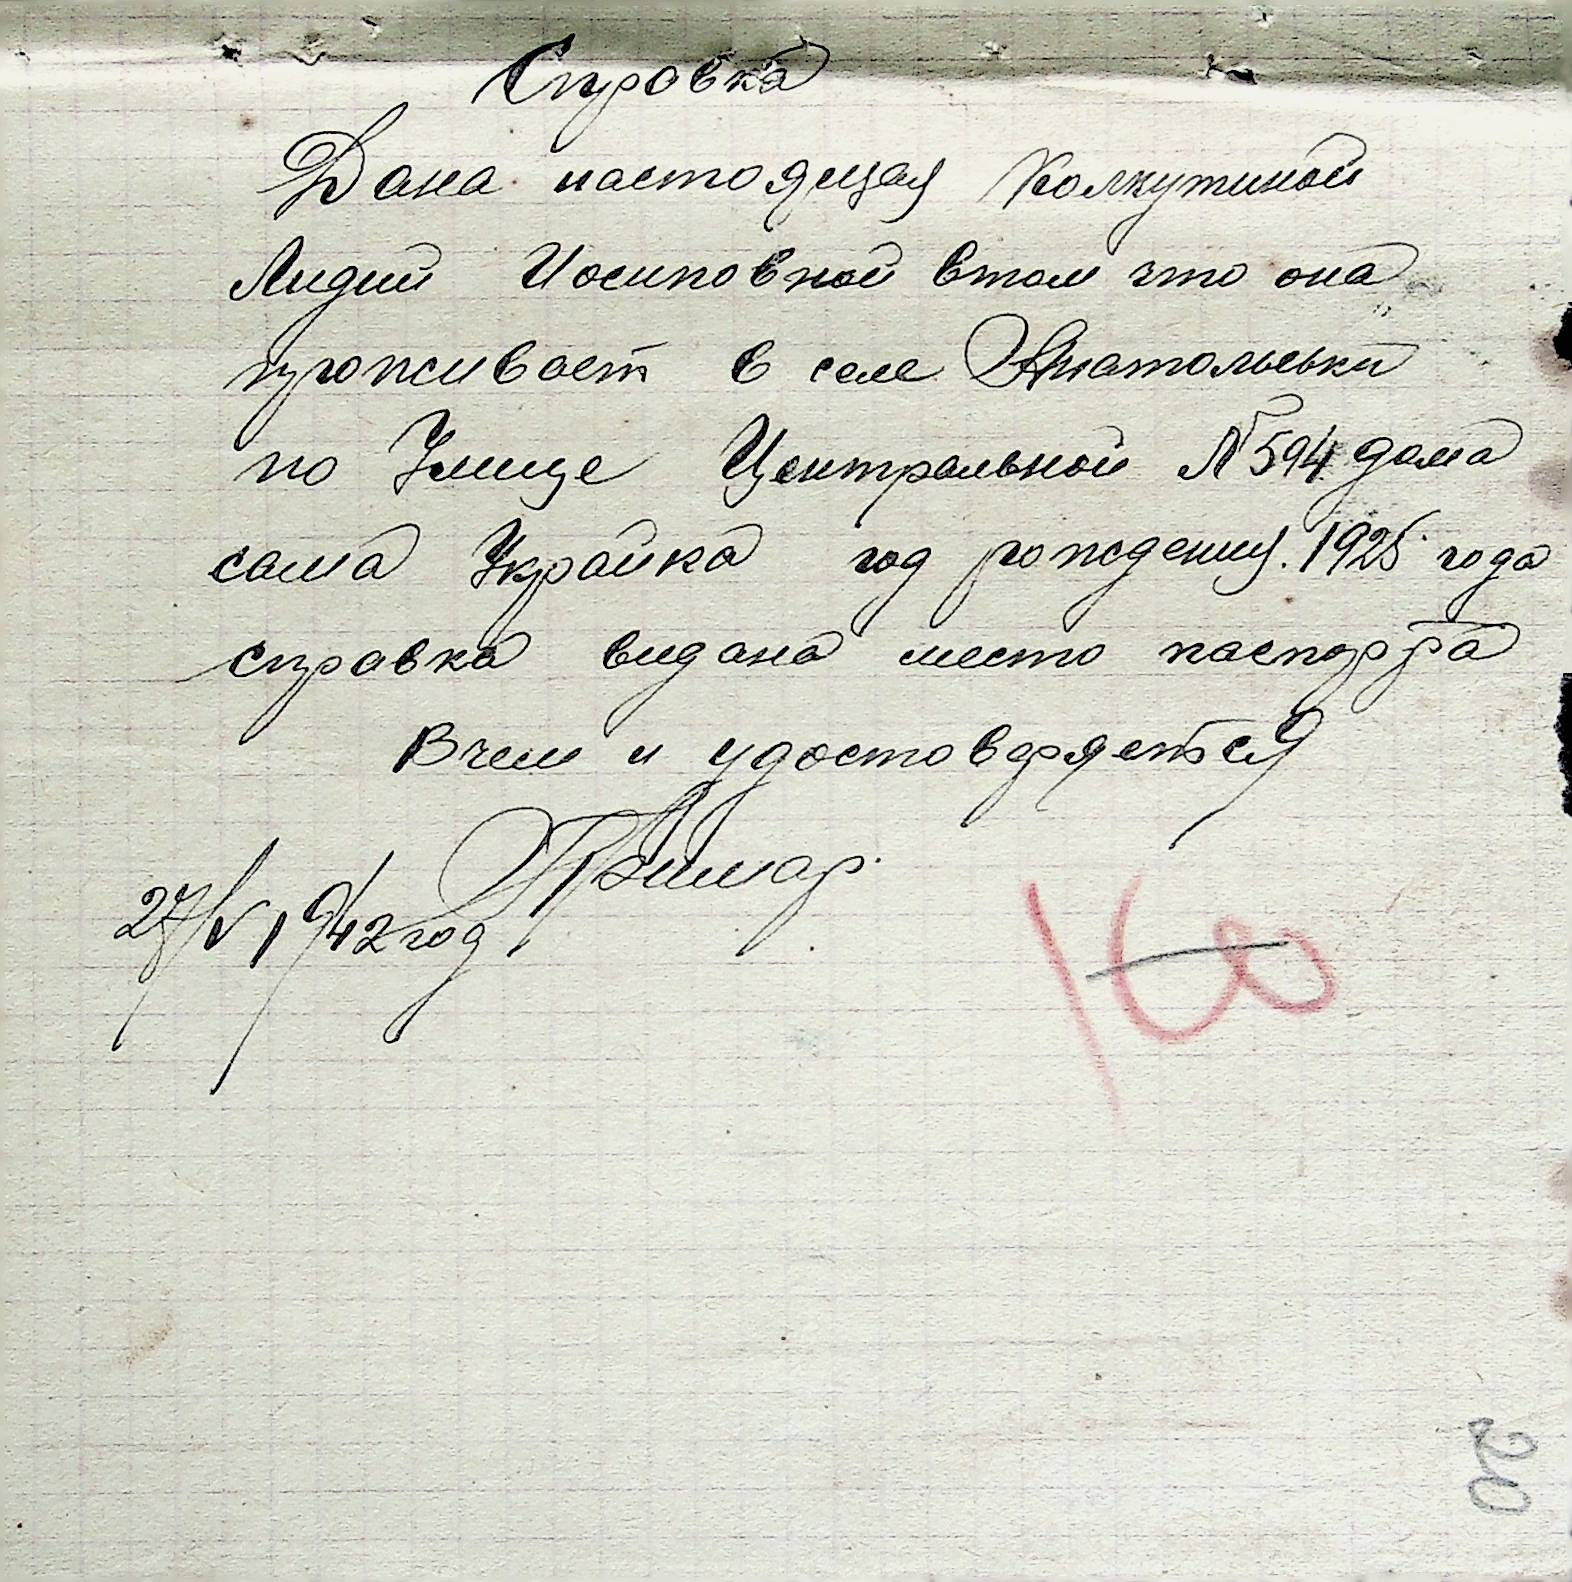 Справка
Дана настоящая Колкутиной
Лидии Иосиповной втом что она
проживает в селе Анатольевки
по Улице Центральной № 594 дома
сама Украйка год рождения. 1925 года
справка видана место паспорта
Вчем и удостоверяется
Примар.
27/V 1942 год
20